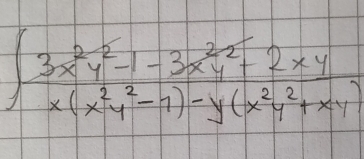 ∫ 3x²y² - 1 - 3x²y² + 2xy
x(x²y² - 1) - y(x²y² + xy)